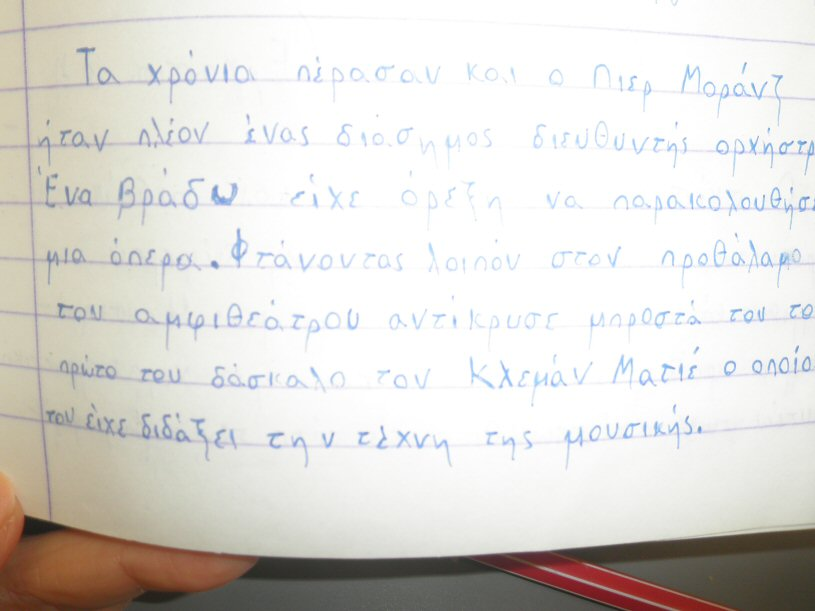 Τα χρόνια πέρασαν και ο Πιερ Μοράνζ
ήταν πλέον ένας διάσημος διευθυντής ορχήστρ
Ένα βράδυ είχε όρεξη να παρακολουθήσε
μια όπερα. Φτάνοντας λοιπόν στον προθάλαμο
του αμφιθεάτρου αντίκρυσε μπροστά του το
πρώτο του δάσκαλο τον Κλεμάν Ματιέ ο οποίο
του είχε διδάξει την τέχνη της μουσικής.